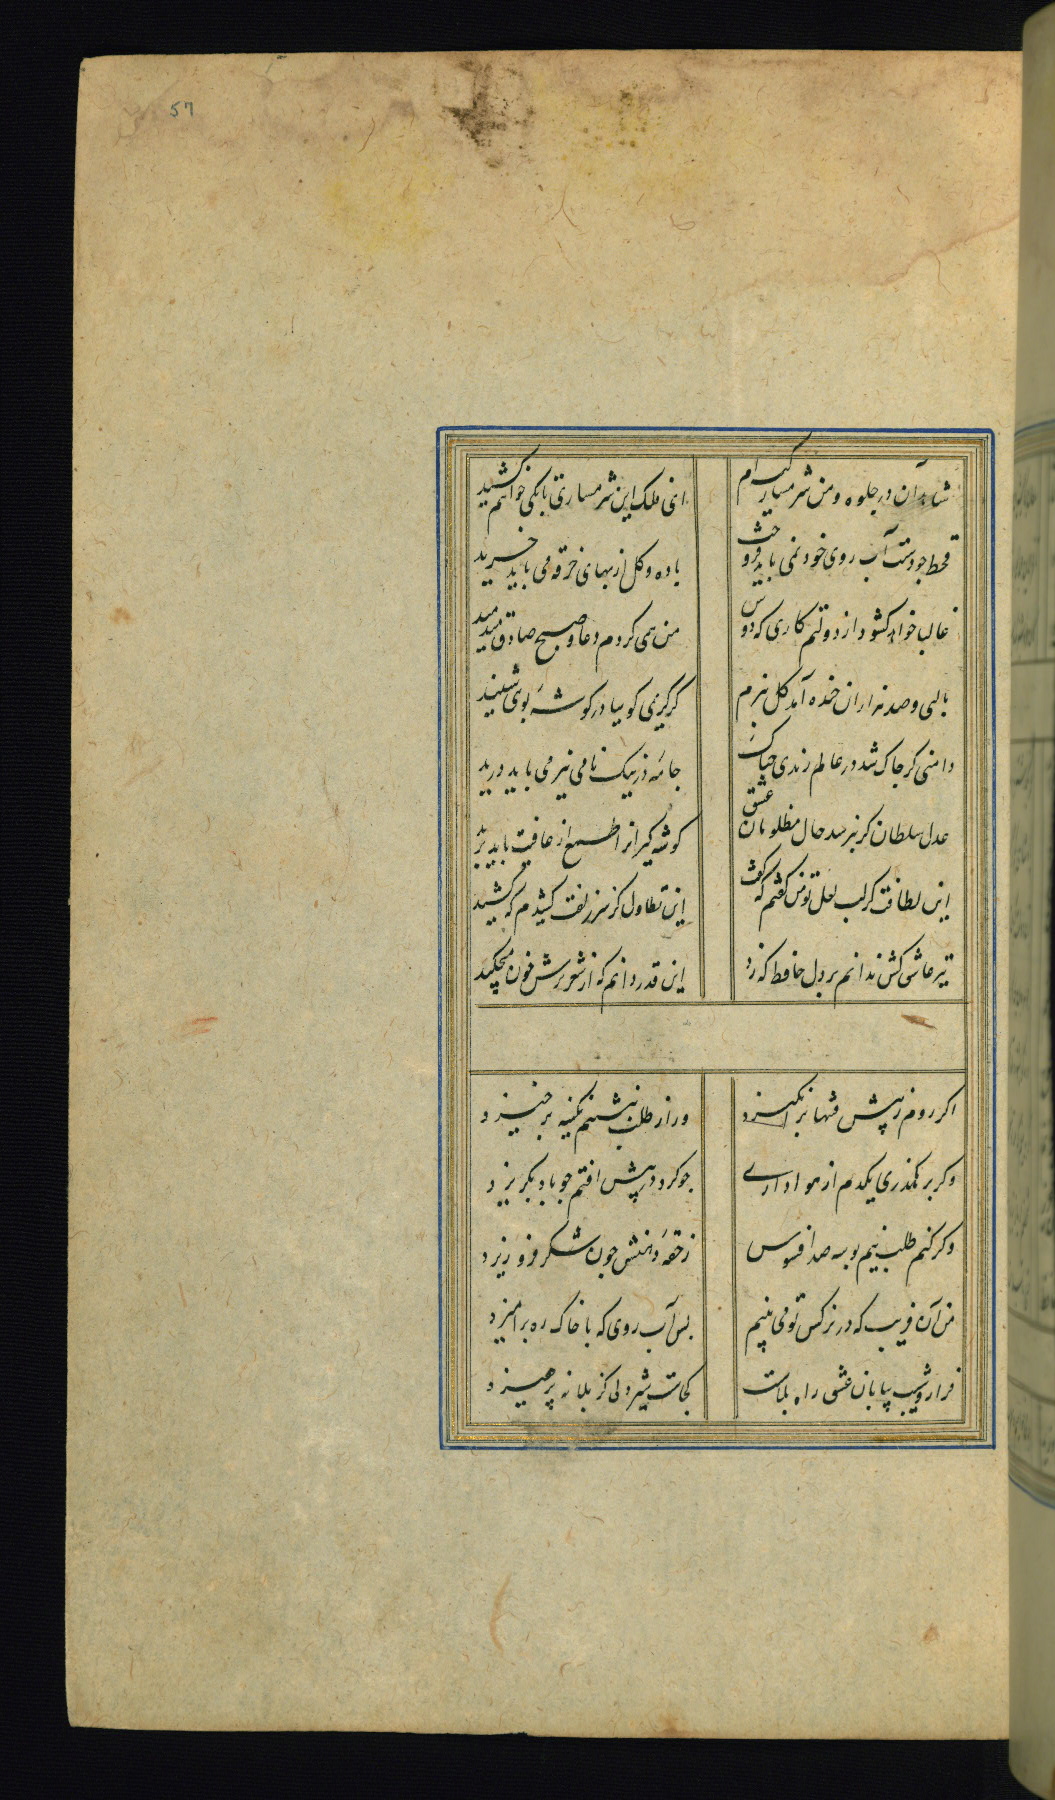 57
شاهدان در جلوه و من شرمسار کیسه‌ام
ای فلک این شرمساری تا بکی خواهم کشید
قحط جودست آب روی خود نمی باید فروخت
باده و کل از بهای خرقه می باید خرید
غالبا خواهد کشود از دولتم کاری که دوش
من همی کردم دعا و صبح صادق میدمید
با لبی و صد هزاران خنده آمد کل بزم
کریمی کوییا در کوشهٔ بوی شنید
دامنی کر چاک شد در عالم رندی چه باک
جامهٔ در نیک نامی نیز می باید درید
عدل سلطان کر نپرسد حال مظلومان عشق
کوشه کیرانرا طمع از عافیت باید برید
این لطافت کز لب لعل تو من کفتم که کفت
این تطاول کز سر زلفت کشیدم که کشید
تیر عاشق کش ندانم بر دل حافظ که زد
این قدر دانم که از شعر ترش خون میچکید
اکر روم ز پیش فتنها برانکیزد
ور از طلب بنشینم بکینه برخیزد
وکر برهکذری یکدم از هواداری
چو کرد در پیش افتم چو باد بکریزد
وکر کنم طلب نیم بوسه صد افسوس
ز حقهٔ دهنش چون شکر فرو ریزد
من آن فریب که در نرکس تو می بینم
بس آب روی که با خاک ره برآمیزد
فراز و شیب بیابان عشق راه بلاست
کجاست شیردلی کز بلا نپرهیزد